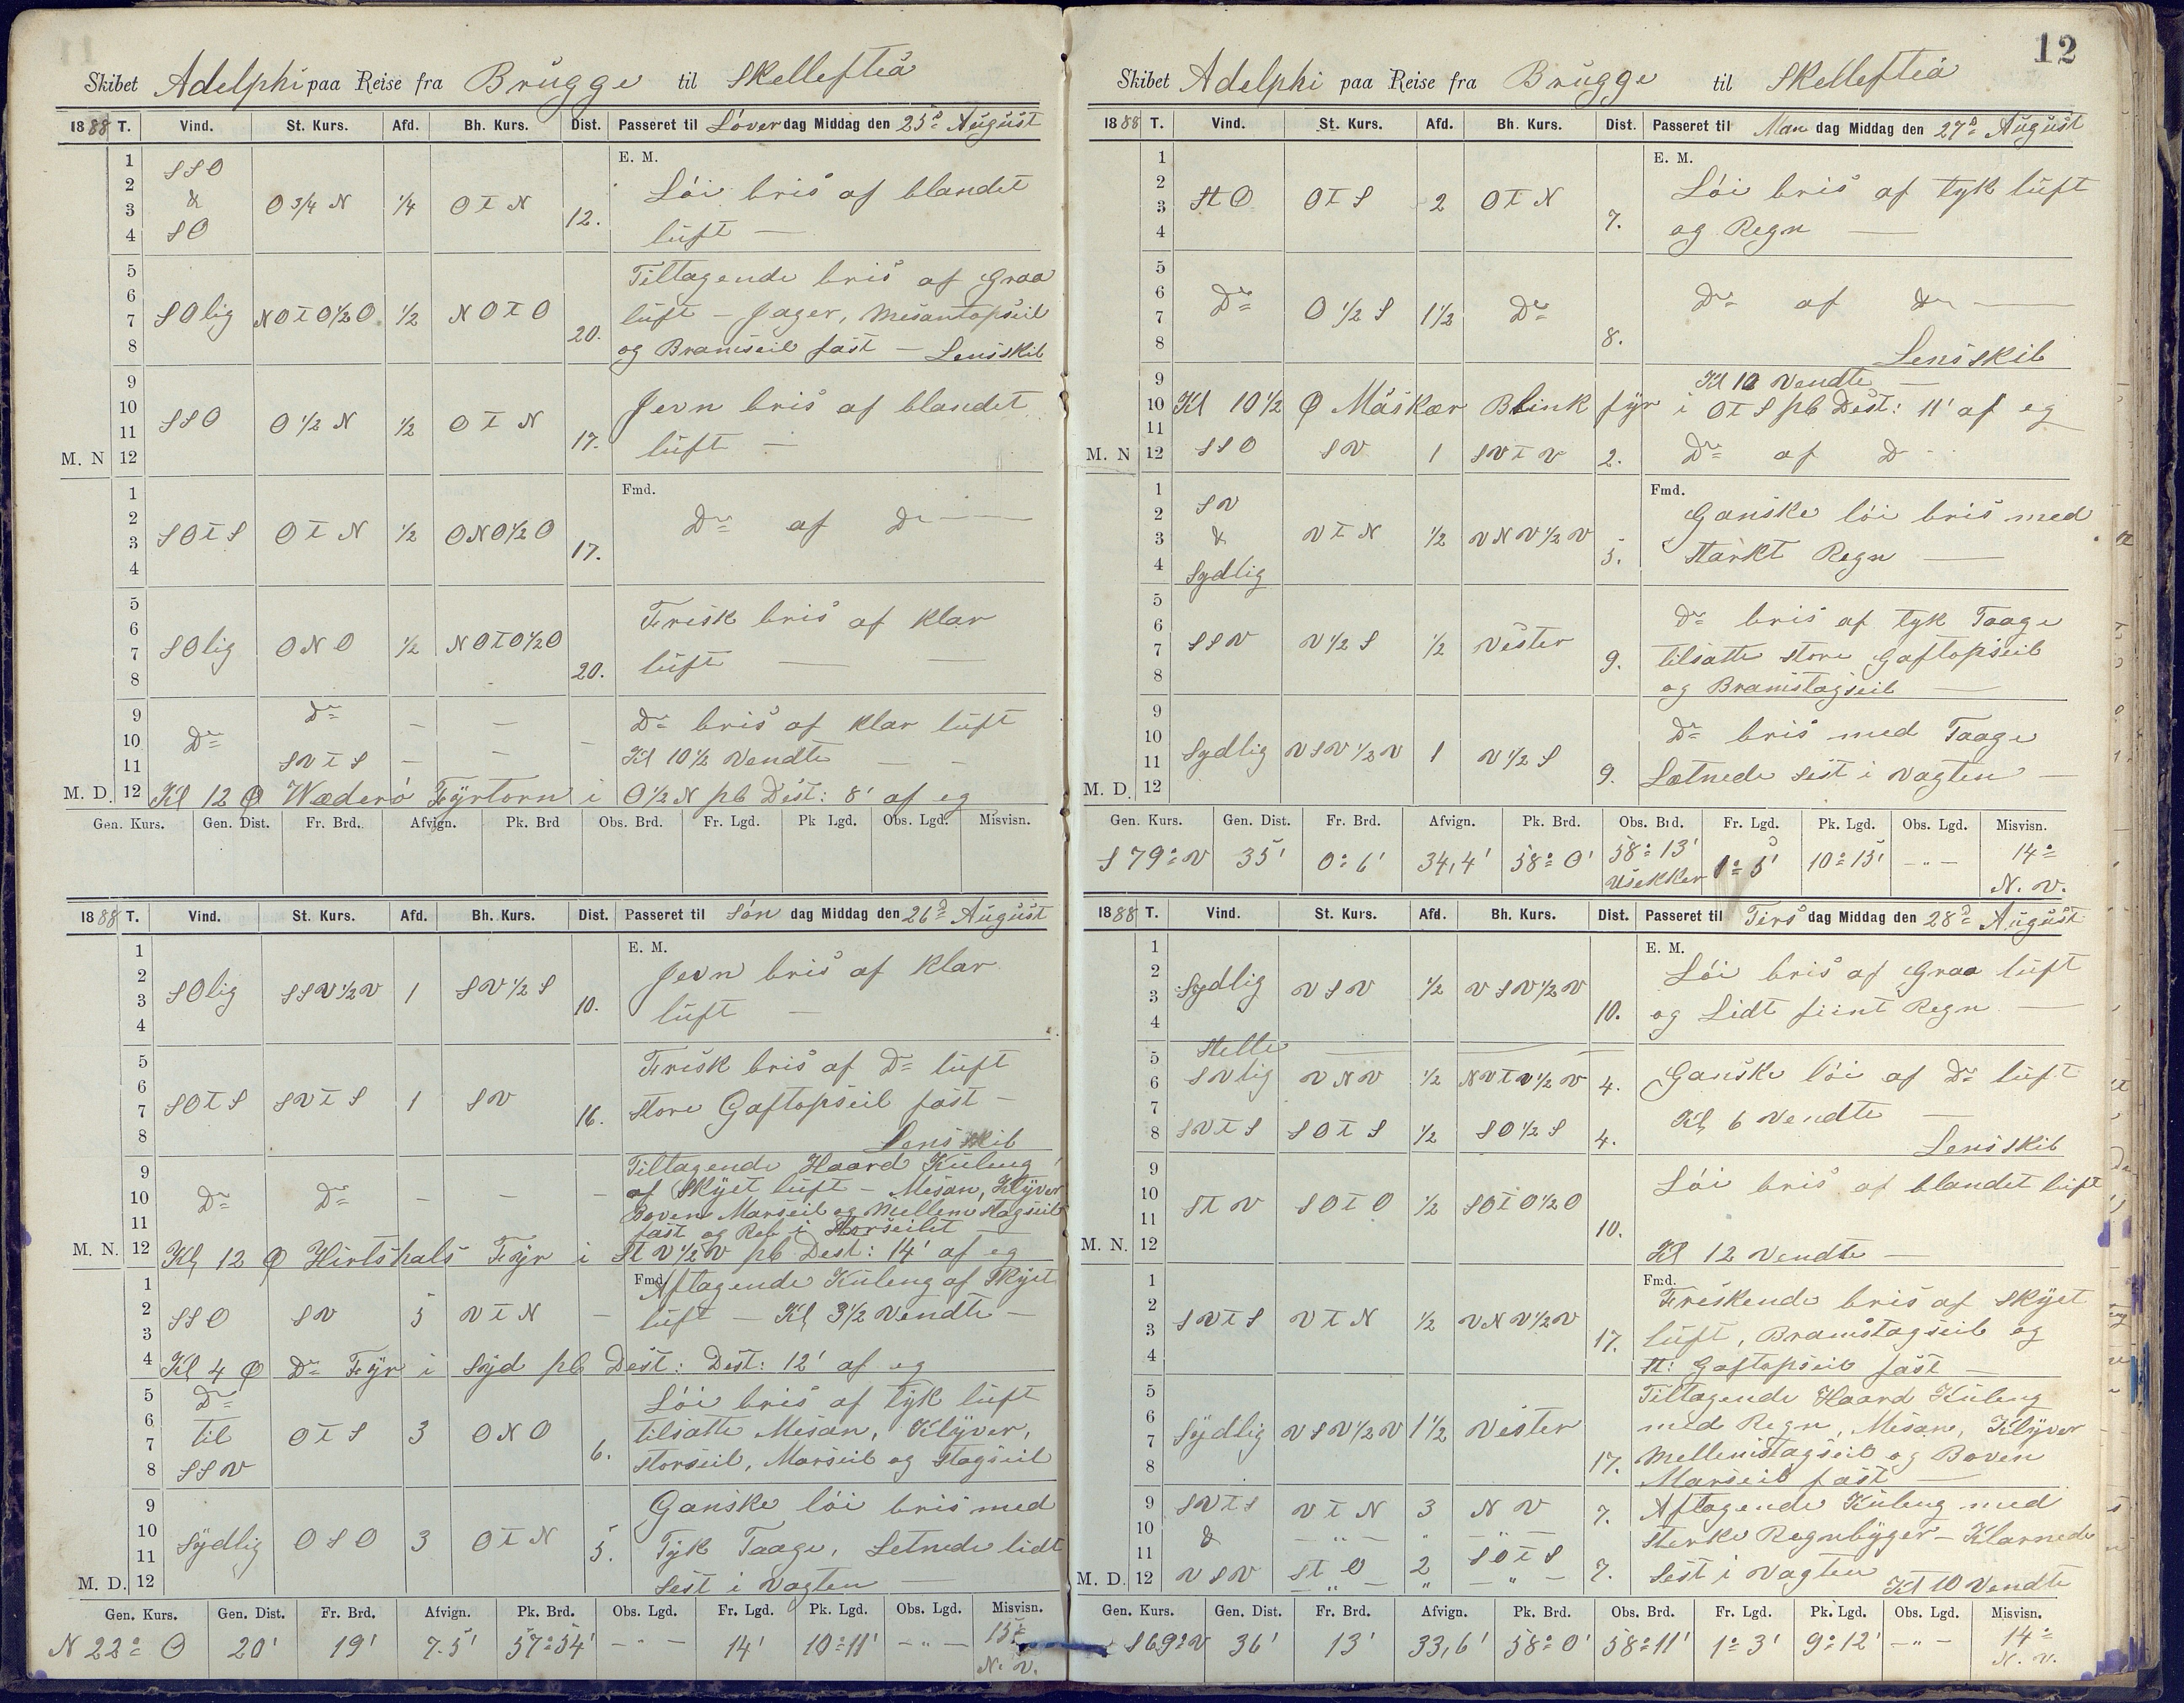 12
Skibet Adelphi paa Reise fra Brügge til Skellefteå
1888 T. Vind. St. Kurs. Afd. Bh. Kurs. Dist. Passeret til Löverdag Middag den 25d August
E. M.
1 2 3 4 SSO & SO O 3/4 N 1/4 O t N 12. Löi bris af blandet
luft —
5 6 7 8 SOlig NO t O 1/2 O 1/2 NO t O 20. Tiltagende bris af Graa
luft — Jager, Mesantopseil
og Bramseil fast — Lens Skib
9 10 11 M. N 12 SSO O 1/2 N 1/2 O t N 17. Jevn bris af blandet
luft —
Fmd.
1 2 3 4 SO t S O t N 1/2 ONO 1/2 O 17. Do af Do —
5 6 7 8 SOlig ONO 1/2 NO t O 1/2 O 20. Frisk bris af klar
luft —
9 10 11 Do Do — — — Do bris af klar luft
SV t S — — Kl 10 1/2 Vendte —
M. D. 12 Kl 12 Φ Wæderö Fyrtorn i O 1/2 N pb Dist: 8' af eg
Gen. Kurs. Gen. Dist. Fr. Brd. Afvign. Pk. Brd Obs. Brd. Fr. Lgd. Pk Lgd. Obs. Lgd. Misvisn.
1888 T. Vind. St. Kurs. Afd. Bh. Kurs. Dist. Passeret til Søn dag Middag den 26d August
E. M.
1 2 3 4 SOlig SSV 1/2 V 1 SV 1/2 S 10. Jevn bris af klar
luft —
5 6 7 8 SO t S SV t S 1 SV 16. Frisk bris af Do luft
store Gaftopseil fast —
Lens Skib
9 10 11 Do Do — — — Tiltagende Haard Kuling
af Skyet luft — Mesan, Klyver
Boven Marseil og Mellemstagseil
fast og Reb i Storseilet —
M. N. 12 Kl 12 Φ Hirtshals Fyr i St V 1/2 V pb Dest: 14' af eg
Fmd.
1 2 3 SSO SV 5 V t N — Aftagende Kuling af Skyet
luft — Kl 3 1/2 Vendte —
4 Kl 4 Φ Do Fyr i Syd pb Dest: Dest: 12' af eg
5 6 7 8 Do til SSV O t S 3 ONO 6. Löi bris af tyk luft
tilsatte Mesan, Klyver,
Storseil, Marseil og Stagseil
9 10 11 M. D. 12 Sydlig OSO 3 O t N 5. Ganske löi bris med
Tyk Taage, Letnede lidt
sest i Vagten —
Gen. Kurs. Gen. Dist. Fr. Brd. Afvign. Pk. Brd. Obs. Lgd. Fr. Lgd. Pk. Lgd. Obs. Lgd. Misvisn.
N 22° O 20' 19' 7.5' 57° 54' — " — 14' 10° 11' — " — 15° N. V.
Skibet Adelphi paa Reise fra Brügge til Skellefteå
1888 T. Vind. St. Kurs. Afd. Bh. Kurs. Dist. Passeret til Man dag Middag den 27d August
E. M.
1 2 3 4 St O O t S 2 O t N 7. Löi bris af tyk luft
og Regn —
5 6 7 8 Do O 1/2 S 1 1/2 Do 8. Do af Do —
Lens skib
9 Kl 10 Vendte —
10 Kl 10 1/2 Φ Måskær Blink fyr i O t S pb Dest: 11' af eg
11 M. N 12 SSO SV 1 SV t V 2. Do af D
Fmd.
1 2 3 4 SV & Sydlig V t N 1/2 VNV 1/2 V 5. Ganske löi bris med
Stärkt Regn —
5 6 7 8 SSV V 1/2 S 1/2 Vester 9. Do bris af tyk Taage
tilsatte store Gaftopseil
og Bramstagseil —
9 10 11 M. D. 12 Sydlig VSV 1/2 V 1 V 1/2 S 9. Do bris med Taage
Lætnede sest i Vagten —
Gen. Kurs. Gen. Dist. Fr. Brd. Afvign. Pk. Brd. Obs. Brd. Fr. Lgd. Pk. Lgd. Obs. Lgd. Misvisn.
S 79° V 35' 0° 6' 34,4' 58° 0' 58° 13' Usekker 1° 5' 10° 15' — " — 14° N. V.
1888 T. Vind. St. Kurs. Afd. Bh. Kurs. Dist. Passeret til Tirs dag Middag den 28d August
E. M.
1 2 3 4 Sydlig VSV 1/2 VSV 1/2 V 10. Löi bris af Graa luft
og Lidt fiint Regn —
5 6 Stille SVlig VNV 1/2 NV t V 1/2 V 4. Ganske löi af Do luft
7 8 SV t S SO t S 1/2 SO 1/2 S 4. Kl 6 Vendte —
Lens skib
9 10 11 M. N. 12 St V SO t O 1/2 SO t O 1/2 O 10. Löi bris af blandet luft
Kl 12 Vendte —
Fmd.
1 2 3 4 SV t S V t N 1/2 VNV 1/2 V 17. Friskende bris af skyet
luft, Bramstagseil og
St: Gaftopseil fast —
5 6 7 8 Sydlig VSV 1/2 V 1 1/2 Vester 17. Tiltagende Haard Kuling
med Regn, Mesan, Klyver
Mellemstagseil og Boven
Marseil fast —
9 SV t S V t N 3 N V 7. Aftagende Kuling med
10 11 & — " — " — " — sterke Regnbyger — Klarnede
M. D. 12 VSV St O 2 SO t S 7. sest i Vagten Kl 10 Vendte
Gen. Kurs. Gen. Dist. Fr. Brd. Afvign. Pk. Brd. Obs. Brd. Fr. Lgd. Pk. Lgd. Obs. Lgd. Misvisn.
S 69° V 36' 13' 33,6' 58° 0' 58° 11' 1° 3' 9° 12' — " — 14° N. V.